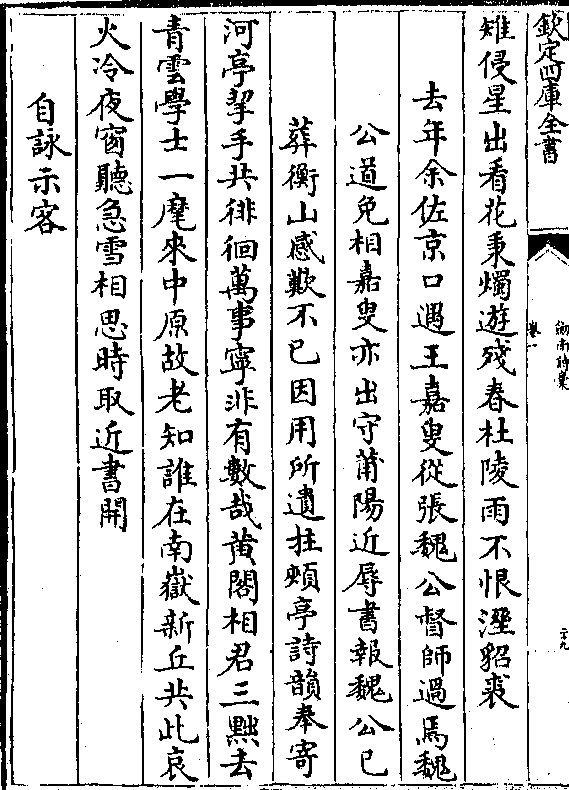 欽定四庫全書
劔南詩稾
卷一
二十九
雉侵星出看花秉燭遊殘春杜陵雨不恨溼貂裘
去年余佐京口遇王嘉叟從張魏公督師過焉魏
公道免相嘉叟亦出守莆陽近辱書報魏公已
葬衡山感歎不已因用所遺拄頰亭詩韻奉寄
河亭挈手共徘徊萬事寧非有數哉黄閣相君三黜去
青雲學士一麾來中原故老知誰在南嶽新丘共此哀
火冷夜窗聽急雪相思時取近書開
自詠示客